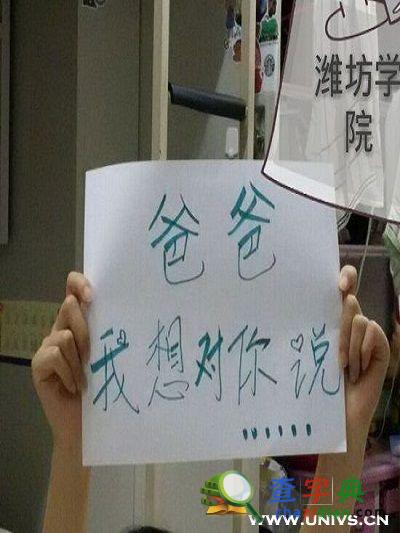 潍坊学
院
爸爸
我想对你说
......
查字典
WWW.UNIVS.CN